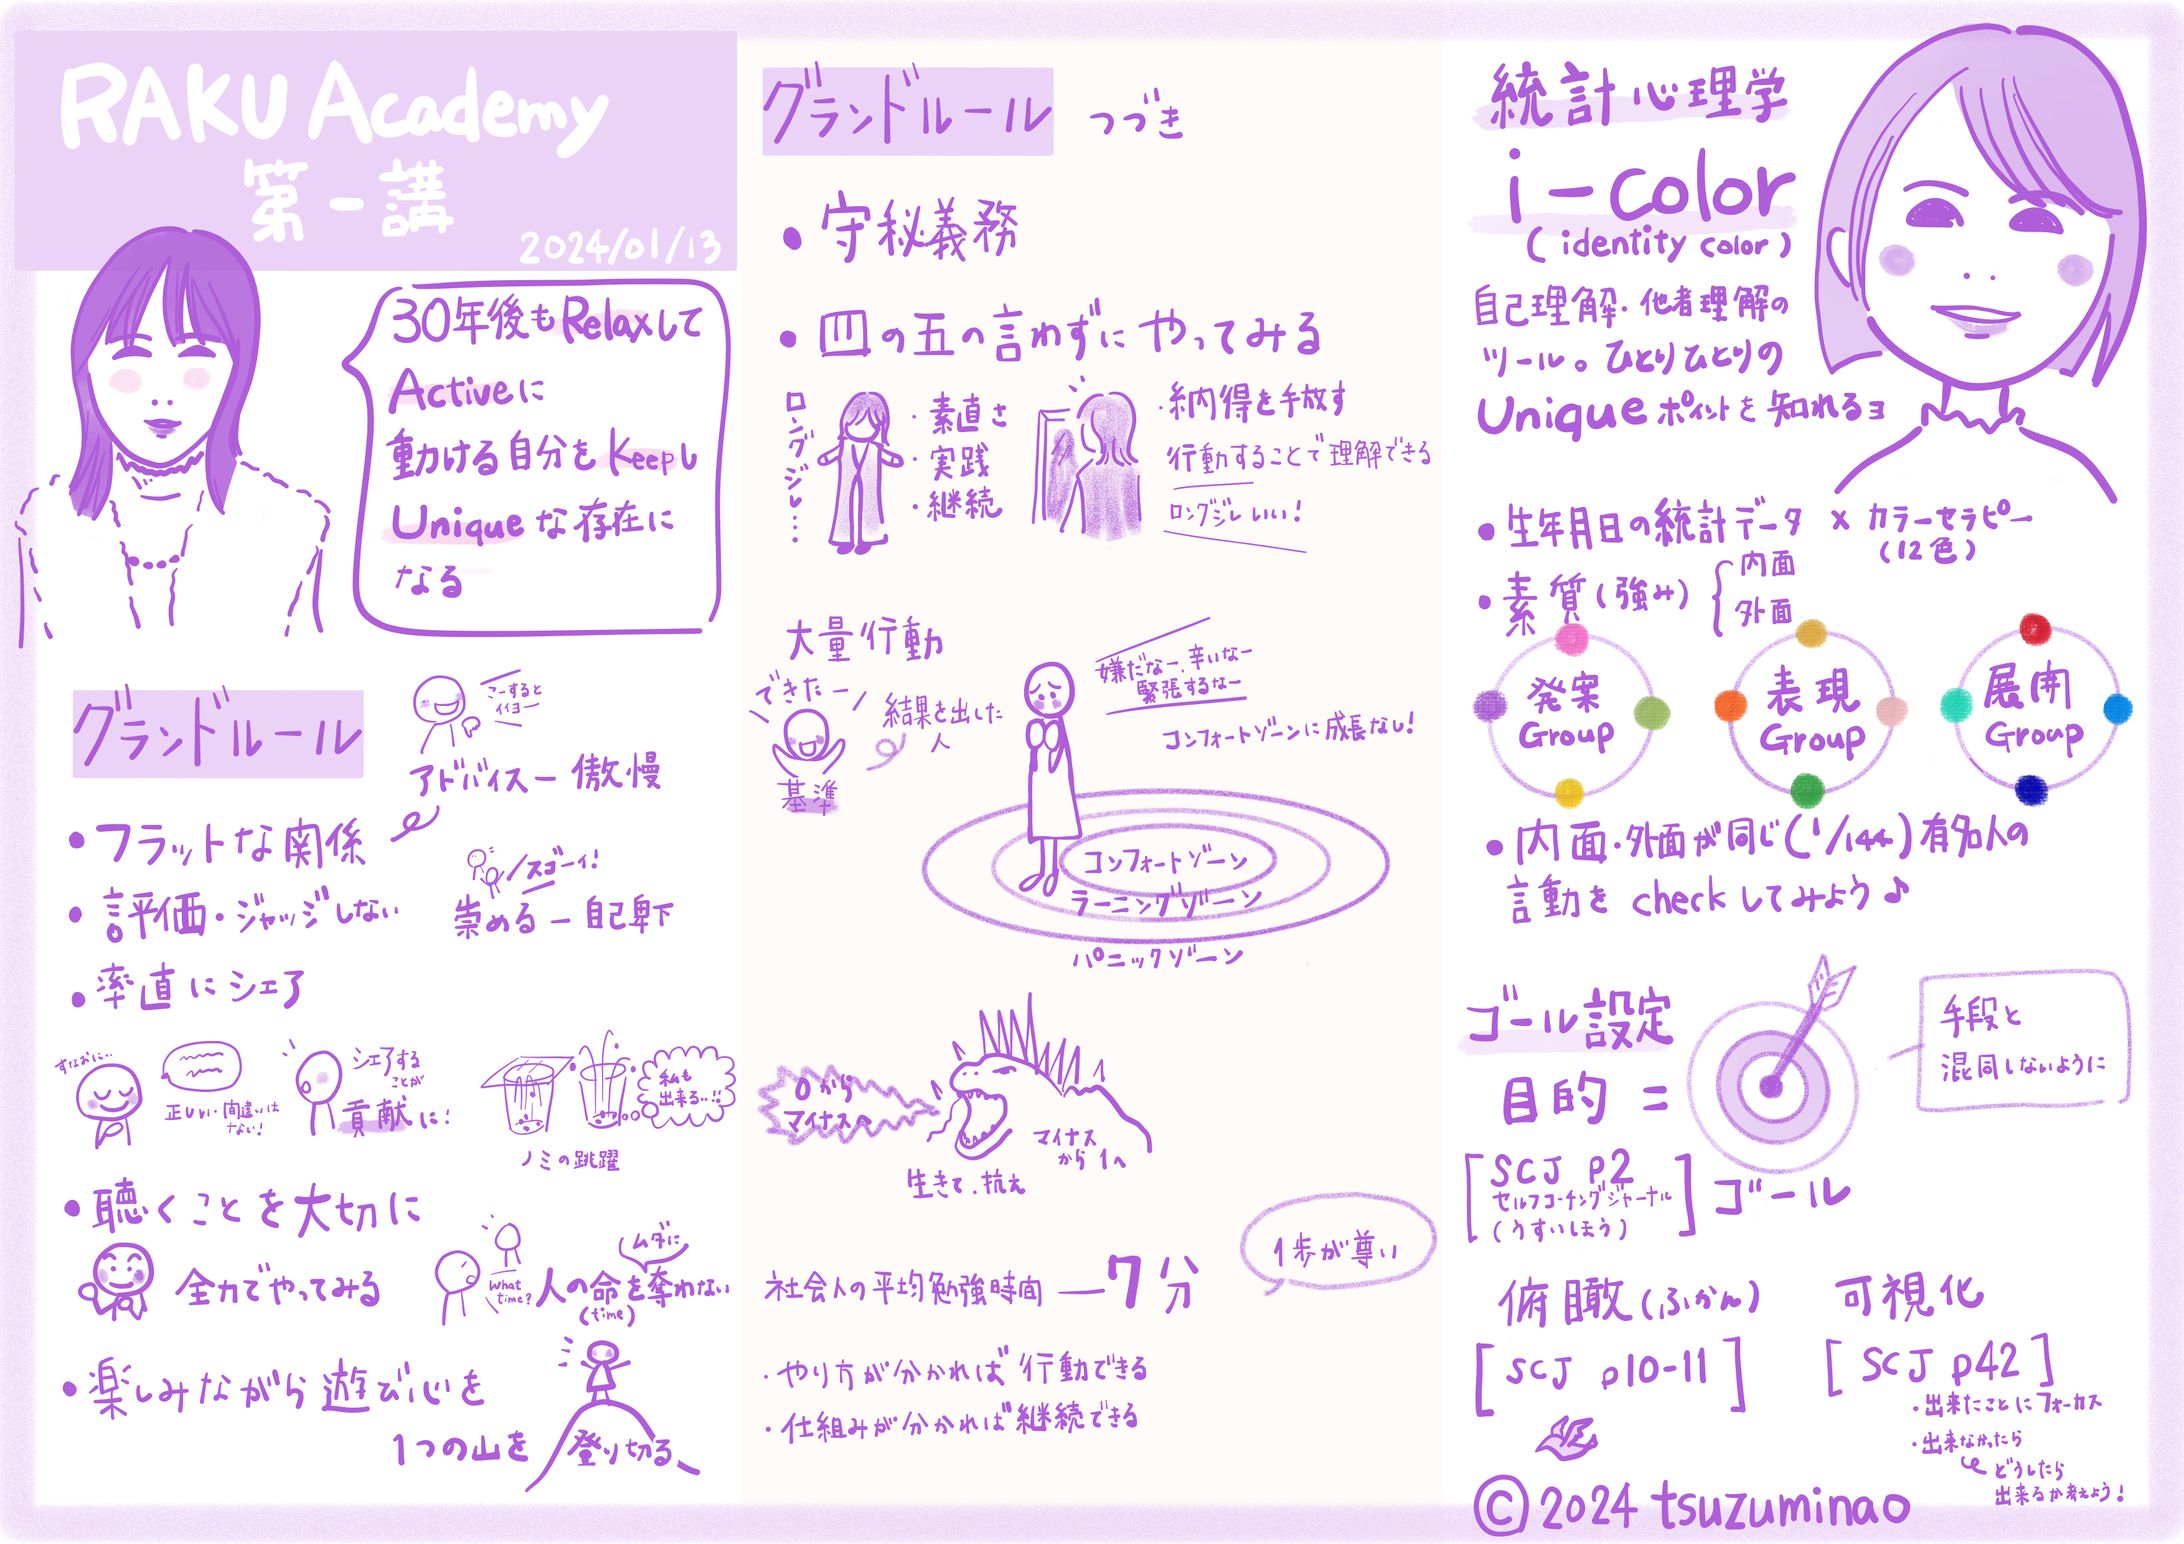 RAKU Academy
第一講
2024/01/13
30年後もRelaxして
Activeに
動ける自分をKeepし
Uniqueな存在に
なる
グランドルール
こーすると
イイヨー
アドバイスー傲慢
・フラットな関係
スゴーイ!
崇めるー自己卑下
・評価・ジャッジしない
・率直にシェア
すなおに..
正しい・間違いは
ない!
シェアする
ことが
貢献に!
私も
出来る..!!
ノミの跳躍
・聴くことを大切に
全力でやってみる
What
time?
ムダに
人の命を奪わない
(time)
・楽しみながら遊び心を
1つの山を
登り切る
グランドルール つづき
・守秘義務
・四の五の言わずにやってみる
ロングジレ...
・素直さ
・実践
・継続
・納得を手放す
行動することで理解できる
ロングジレいい!
大量行動
できたー
結果を出した
人
基準
嫌だなー、辛いなー
緊張するなー
コンフォートゾーンに成長なし!
コンフォートゾーン
ラーニングゾーン
パニックゾーン
0から
マイナスへ
マイナス
から1へ
生きて、抗え
1歩が尊い
社会人の平均勉強時間 ー7分
・やり方が分かれば行動できる
・仕組みが分かれば継続できる
統計心理学
i-color
(identity color)
自己理解・他者理解の
ツール。ひとりひとりの
Uniqueポイントを知れるヨ
・生年月日の統計データ × カラーセラピー
(12色)
・素質(強み)
内面
外面
発案
Group
表現
Group
展開
Group
・内面・外面が同じ(1/144)有名人の
言動をcheckしてみよう♪
ゴール設定
目的 =
手段と
混同しないように
[SCJ P2
セルフコーチングジャーナル
(うすいほう)]
ゴール
俯瞰(ふかん)
[SCJ p10-11]
可視化
[SCJ p42]
・出来たことにフォーカス
・出来なかったら
どうしたら
出来るか考えよう!
©2024 tsuzuminao